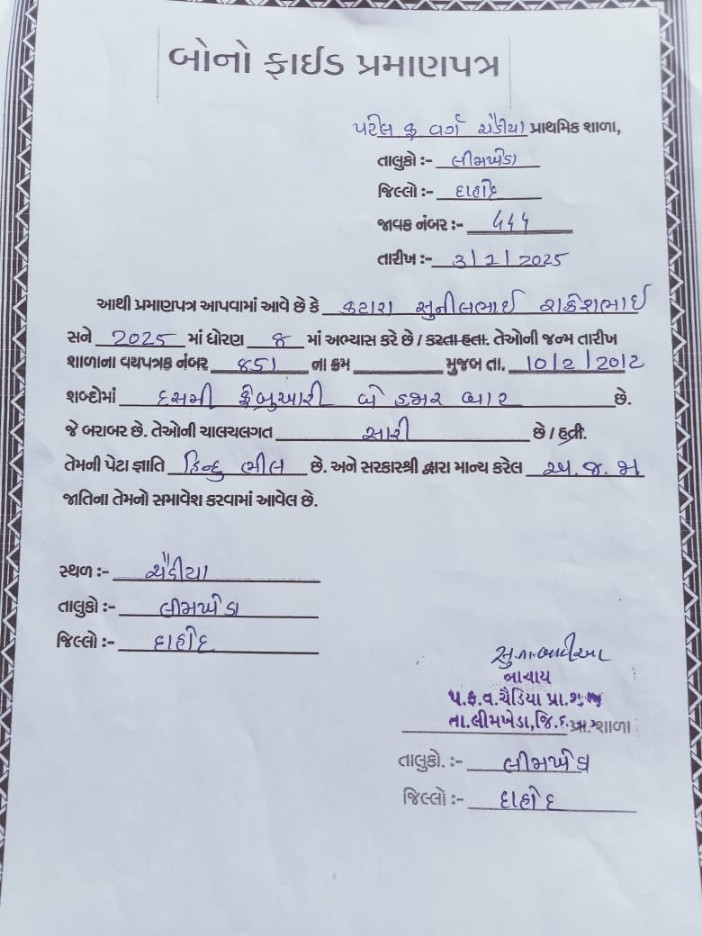 બોનો ફાઈડ પ્રમાણપત્ર
પટેલ ફ વર્ગ ચૈડીયા પ્રાથમિક શાળા,
તાલુકો :- લીમખેડા
જિલ્લો :- દાહોદ
જાવક નંબર :- ૬૬૬
તારીખ :- 3/2/2025
આથી પ્રમાણપત્ર આપવામાં આવે છે કે કટારા સુનીલભાઈ રાકેશભાઈ
સને 2025 માં ધોરણ ૪ માં અભ્યાસ કરે છે / કરતા હતા. તેઓની જન્મ તારીખ
શાળાના વયપત્રક નંબર ૪૬૫૧ ના ક્રમ મુજબ તા. 10/2/2012
શબ્દોમાં દસમી ફેબ્રુઆરી બે હજાર બાર છે.
જે બરાબર છે. તેઓની ચાલચલગત સારી છે / હતી.
તેમની પેટા જ્ઞાતિ હિન્દુ ભીલ છે. અને સરકારશ્રી દ્વારા માન્ય કરેલ અ.જ.જા
જાતિના તેમનો સમાવેશ કરવામાં આવેલ છે.
સ્થળ :- ચૈડીયા
તાલુકો :- લીમખેડા
જિલ્લો :- દાહોદ
પ.ફ.વ.ચૈડિયા પ્રા.શાળા
તા.લીમખેડા,જિ.દ. પ્રા. શાળા
તાલુકો. :- લીમખેડા
જિલ્લો :- દાહોદ